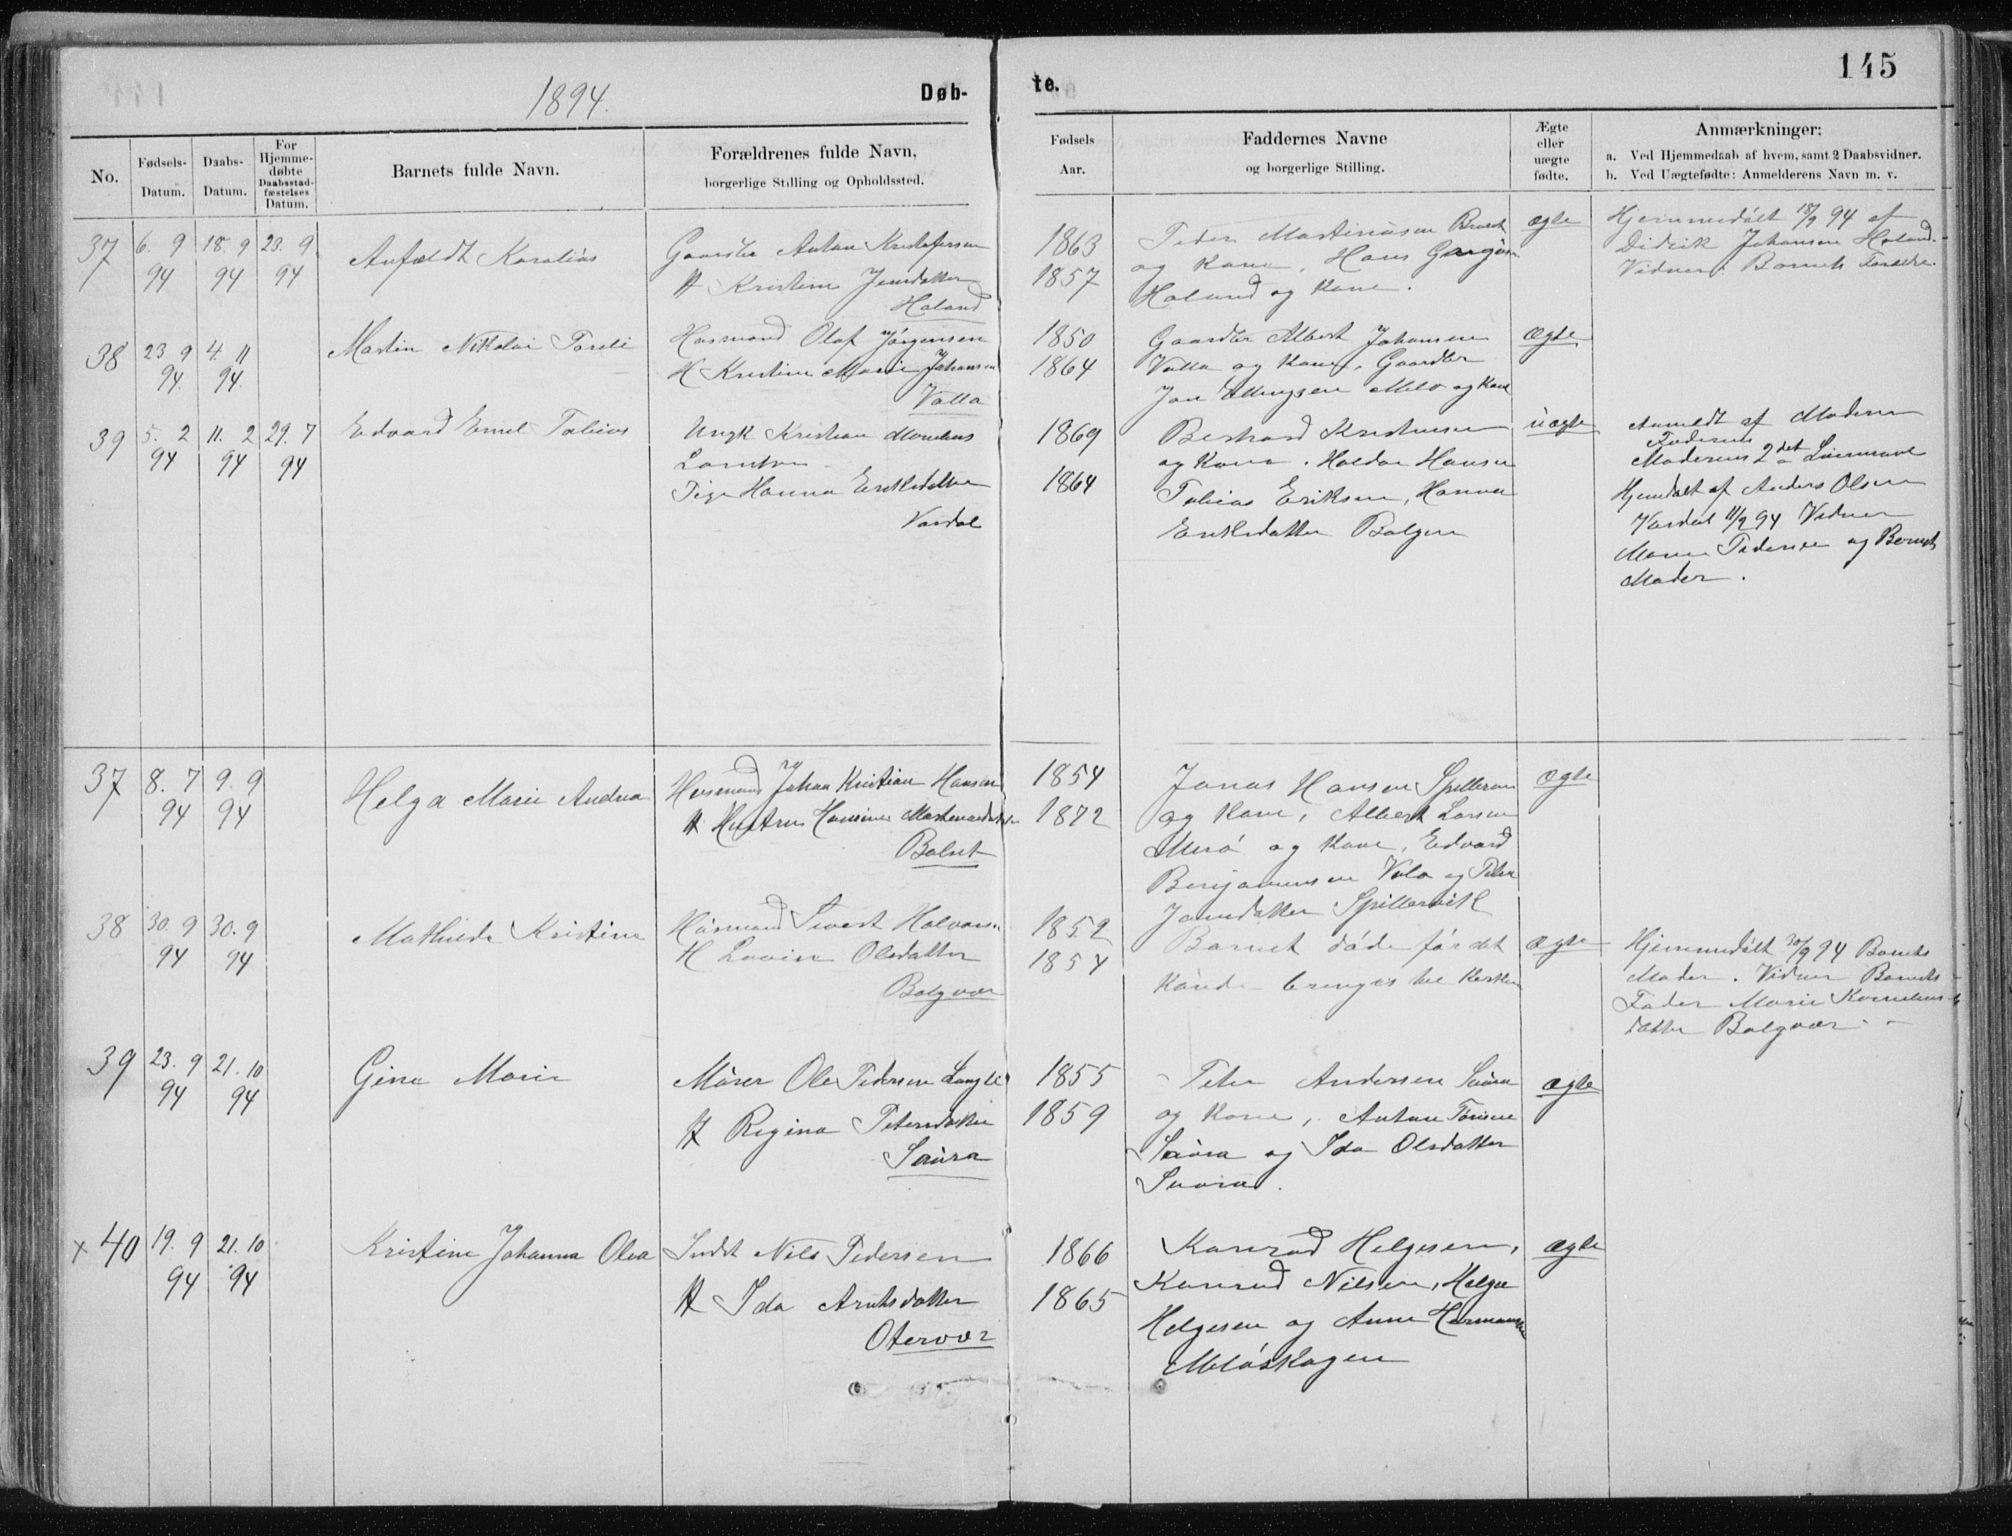 145
1894.
Døb-
te.
No.
Fødsels-
Datum.
Daabs-
Datum.
For
Hjemme-
døbte
Daabsstad-
fæstelses
Datum.
Barnets fulde Navn.
Forældrenes fulde Navn,
borgerlige Stilling og Opholdssted.
Fødsels
Aar.
Faddernes Navne
og borgerlige Stilling.
Ægte
eller
uægte
fødte.
Anmærkninger:
a. Ved Hjemmedaab af hvem, samt 2 Daabsvidner.
b. Ved Uægtefødte: Anmelderens Navn m. v.
37
6. 9
94
18. 9
94
23. 9
94
Anfældt Karolius
Gaardbr Anton Kristofersen
H Kristine Jensdatter
Haland
1863
1857
Peder Martinusen
og Kone, Hans
Haland og Kone.
ægte
Hjemmedøbt 18/9 94 af
Didrik Johansen Haland.
Vidner: Barnets Forældre
38
23. 9
94.
4. 11
94.
Martin Nikolai
Husmand Olaf Jørgensen
H Kristine Marie Johansen
Valla
1850
1864
Gaardbr Albert Johansen
Valla og Kone, Gaardbr
Jon Ellingsen Melø og Kone
ægte
39
5. 2
94
11. 2
94
29. 7
94
Edvard Emil Tobias
Ungk Kristian
Pige Hanna Eriksdatter
Vardal
1869
1864
Berhard Kristensen
og Kone. Haldor Hansen
Tobias Eriksen, Hanna
Eriksdatter Bolgen
uægte
Anmeldt af Moderen
Faderens
Moderens 2det Leiermaal
Hjemdøbt af Anders Olsen
Vardal 11/2 94 Vidner
Pedersen og Barnets
Moder.
37
8. 7
94
9. 9
94
Helga Marie Andrea
Husmand Johan Kristian Hansen
H Hustru Hansine
Bolset
1854
1872
Jonas Hansen Spilleren
og Kone, Albert Larsen
Merø og Kone, Edvard
Benjaminsen Vala og
Jansdatter Spillervik
ægte
38
30. 9
94
30. 9
94
Mathilde Kristine
Husmand Sivert
H Lovise Olsdatter
Bolgvær
1852
1854
Barnet døde før det
kunde bringes til Kirken
ægte
Hjemmedøbt 30/9 94 Barnets
Moder. Vidner Barnets
Fader Marie Kornelius-
datter Bolgvær.
39
23. 9
94
21. 10
94
Gina Marie
Murer Ole Pedersen
H Regina Petersdatter
Saura
1855
1859
Peter Andersen Saura
og Kone, Anton
Saura og Ida Olsdatter
Saura.
ægte
x 40
19. 9
94
21. 10
94
Kristine Johanna Olea
Indst Nils Pedersen
H Ida Arntsdatter
Otervær
1866
1865
Konrad Helgesen,
Konrad Nilsen, Helga
Helgesen og Anne
Meløskagen
ægte